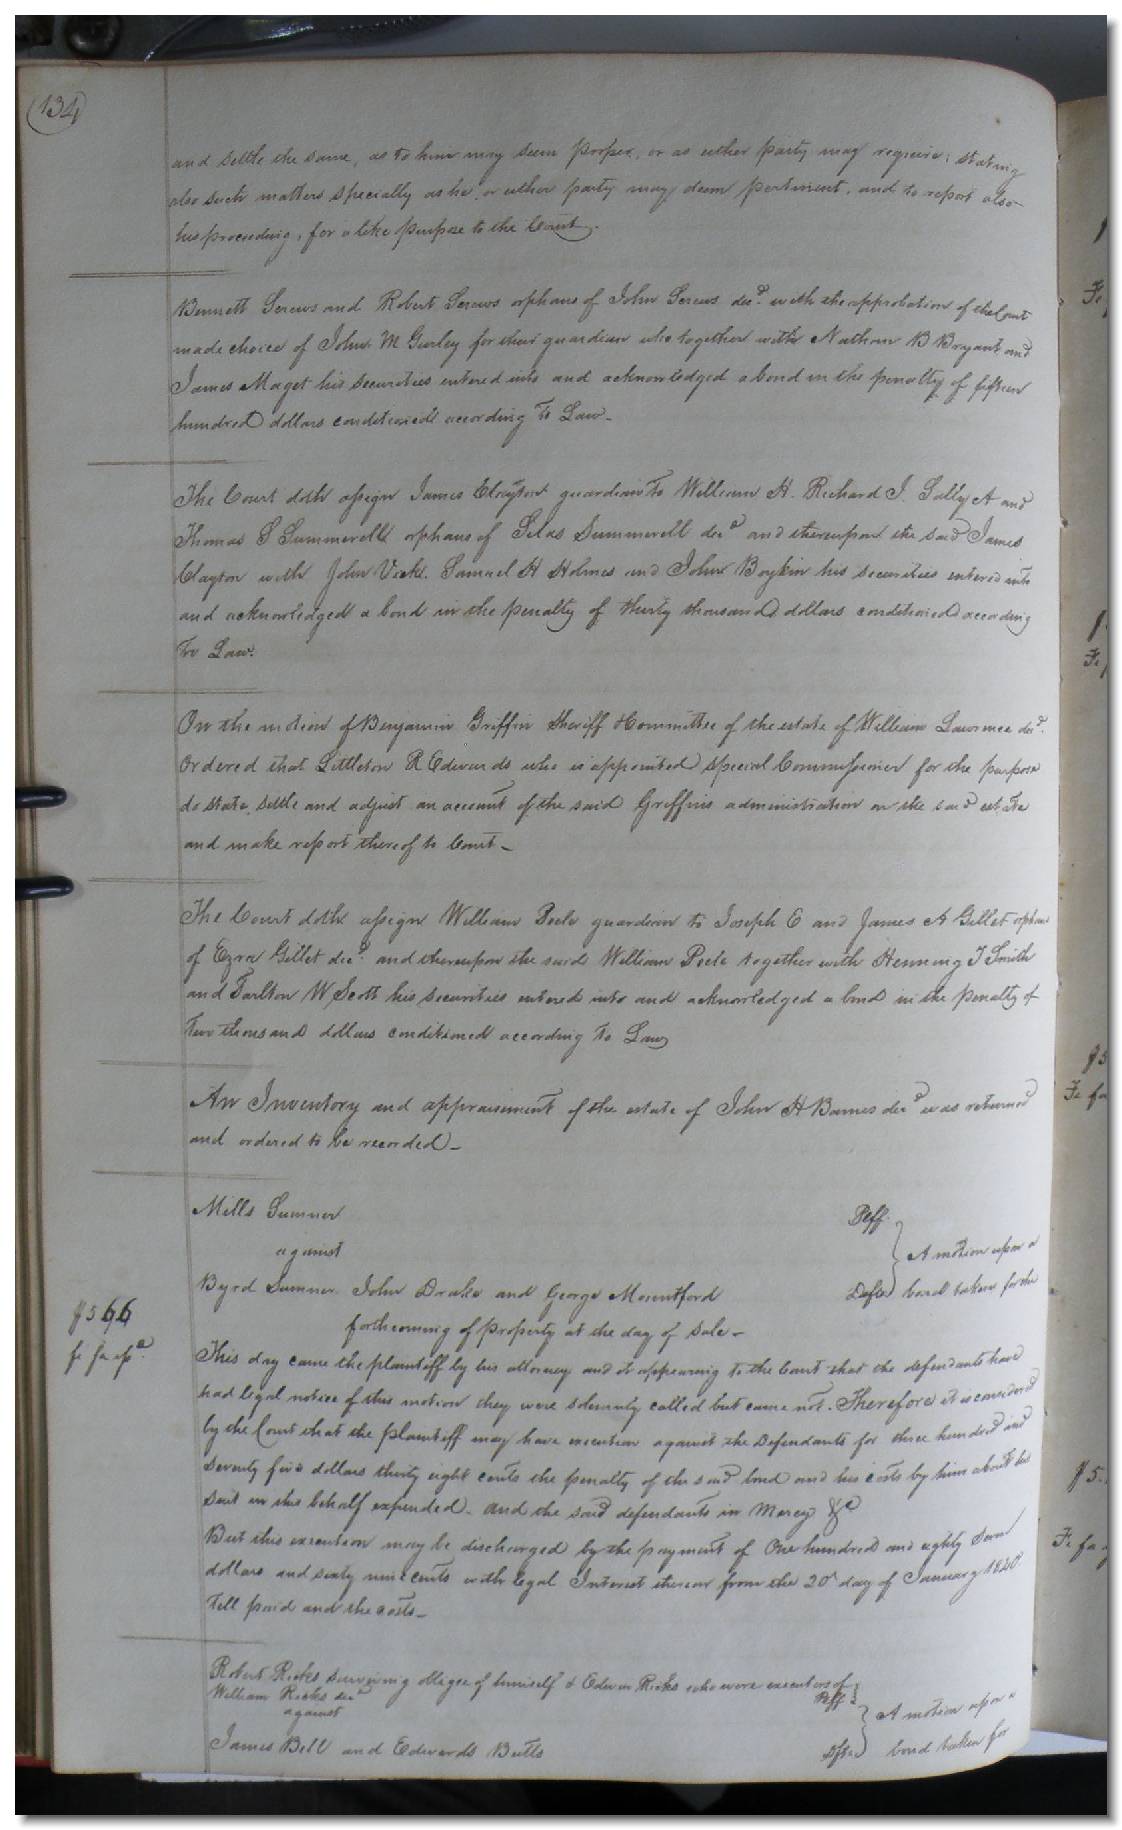 134
and settle the same, as to him may seem proper, or as either party may require; stating
also such matters specially as he, or either party may deem pertinent, and to report also
his proceeding, for a like purpose to the Court.
Bennett Screws and Robert Screws orphans of John Screws decd. with the approbation of the Court
made choice of John M Gurley for their guardian who together with Nathan B Bryant and
James Maget his securities entered into and acknowledged a bond in the penalty of fifteen
hundred dollars conditioned according to Law_
The Court doth assign James Clayton guardian to William H. Richard J. Sally A and
Thomas S Summerell orphans of Silas Summerell decd and thereupon the said James
Clayton with John Vick. Samuel H Holmes and John Boykin his securities entered into
and acknowledged a bond in the penalty of thirty thousand dollars conditioned according
To Law.
On the motion of Benjamin Griffin Sheriff & Committee of the estate of William Lawrence decd.
Ordered that Littleton R Edwards who is appointed special Commissioner for the purpose
do state, settle and adjust an account of the said Griffins administration on the said estate
and make report thereof to Court_
The Court doth assign William Peele guardian to Joseph E and James A Gillet orphans
of Ezra Gillet decd. and thereupon the said William Peele together with Henning T Smith
and Tarlton W Scott his securities entered into and acknowledged a bond in the penalty of
Two thousand dollars conditioned according to Law
An Inventory and appraisement of the estate of John H Barnes decd was returned
and ordered to be recorded_
Mills Sumner Plff.
against A motion upon a
Byrd Sumner John Drake and George Mountford Defts bond taken for the
forthcoming of property at the day of sale_
$5.66
fi fa issd.
This day came the plaintiff by his attorney and it appearing to the Court that the defendants have
had legal notice of this motion they were solemnly called but came not. Therefore it is considered
by the Court that the plaintiff may have execution against the Defendants for three hundred and
seventy five dollars thirty eight cents the penalty of the said bond and his costs by him about his
suit in this behalf expended. and the said defendants in Mercy &c
But this execution may be discharged by the payment of One hundred and eighty seven
dollars and sixty nine cents with legal Interest thereon from the 20th day of January 1840
till paid and the costs_
Robert Ricks surviving obligee of himself & Edwin Ricks who were executors of
William Ricks decd Plff
against A motion upon a
James Bell and Edwards Butts Dfts bond taken for